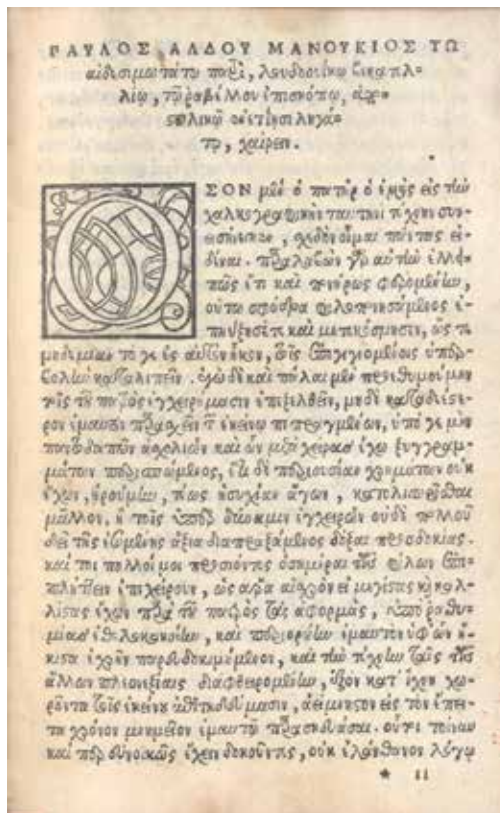 ΠΑΥΛΟΣ ΑΛΔΟΥ ΜΑΝΟΥΚΙΟΣ ΤΩ
αἰδεσιμωτάτῳ πατρὶ, λουδδουίκῳ
λίῳ, τῷ ραβέλλου ἐπισκόπῳ, ἀπο-
στολικῷ οὐετίησι ληγά-
τῳ, χαίρειν.
ΟΣΟΝ μὲν ὁ πατὴρ ὁ ἐμὸς εἰς τὴν
χαλκογραφικὴν ταυτηνὶ τέχνην συν-
οὐδένα οἶμαι
παραλαβὼν γὰρ αὐτὴν ἐλλι-
πῶς ἔτι καὶ πονήρως φερομένην,
οὕτω σφόδρα φιλοπονησάμενος ἐ-
καὶ μετεκόσμησεν, ὥς τε
μηδεμίαν τό γε εἰς αὐτὸν ἧκον, τοῖς ἐπιγιγνομένοις ὑπερ-
βολὴν καταλιπεῖν. ἐγὼ δὲ καὶ πάλαι μὲν προεθυμούμην
τοῖς τοῦ πατρὸς ἐγχειρήμασιν ἐπεξελθεῖν, μηδὲ καταδεέστε-
ρον ἐμαυτὸν παρασχεῖν τῶν ἐκείνῳ πεπραγμένων, ὑπό γε μὴν
παντοδαπῶν ἀσχολιῶν καὶ ὧν μεταχεῖρας ἔχω ξυγγραμ-
μάτων περισπώμενος, ἔτι δὲ περιουσίαν χρημάτων οὐκ
ἔχων, ἡρούμην, πως ἡσυχίαν ἄγων,
μᾶλλον, ἢ τοῖς ὑπὲρ δύναμιν ἐγχειρῶν οὐδὲ πολλοῦ
δεῖ τῆς ἄξια διαπραξάμενος δόξαι προσδοκίας.
καί τοι πολλοί μοι προσιόντες ὁσημέραι τῶν φίλων ἐπι-
πλήττειν ἐπεχείρουν, ὡς ἄρα αἰσχρὸν εἰ μεγίστας καὶ καλ-
λίστας ἔχων παρὰ τοῦ πατρὸς τὰς ἀφορμὰς, ὑπὸ ῥαθυ-
μίας καὶ περιορῴην ἐμαυτὸν ὑφ' ὧν ἥ-
κιστα ἐχρῆν παρευδοκιμούμενον, καὶ τὴν τέχνην ταῖς τῶν
ἄλλων πλεονεξίαις διαφθειρομένην, ἐξὸν κατ' ἴχνη χω-
ροῦντα τοῖς ἐκείνου ἀείμνηστον εἰς τὸν ἔπει-
τα χρόνον μνημεῖον ἐμαυτῷ παρασκευάσαι. οὗτοι τοίνυν
καί περ εὐνοικῶς ἔχειν δοκοῦντες, οὐκ ἐλάνθανον λόγῳ
* ii